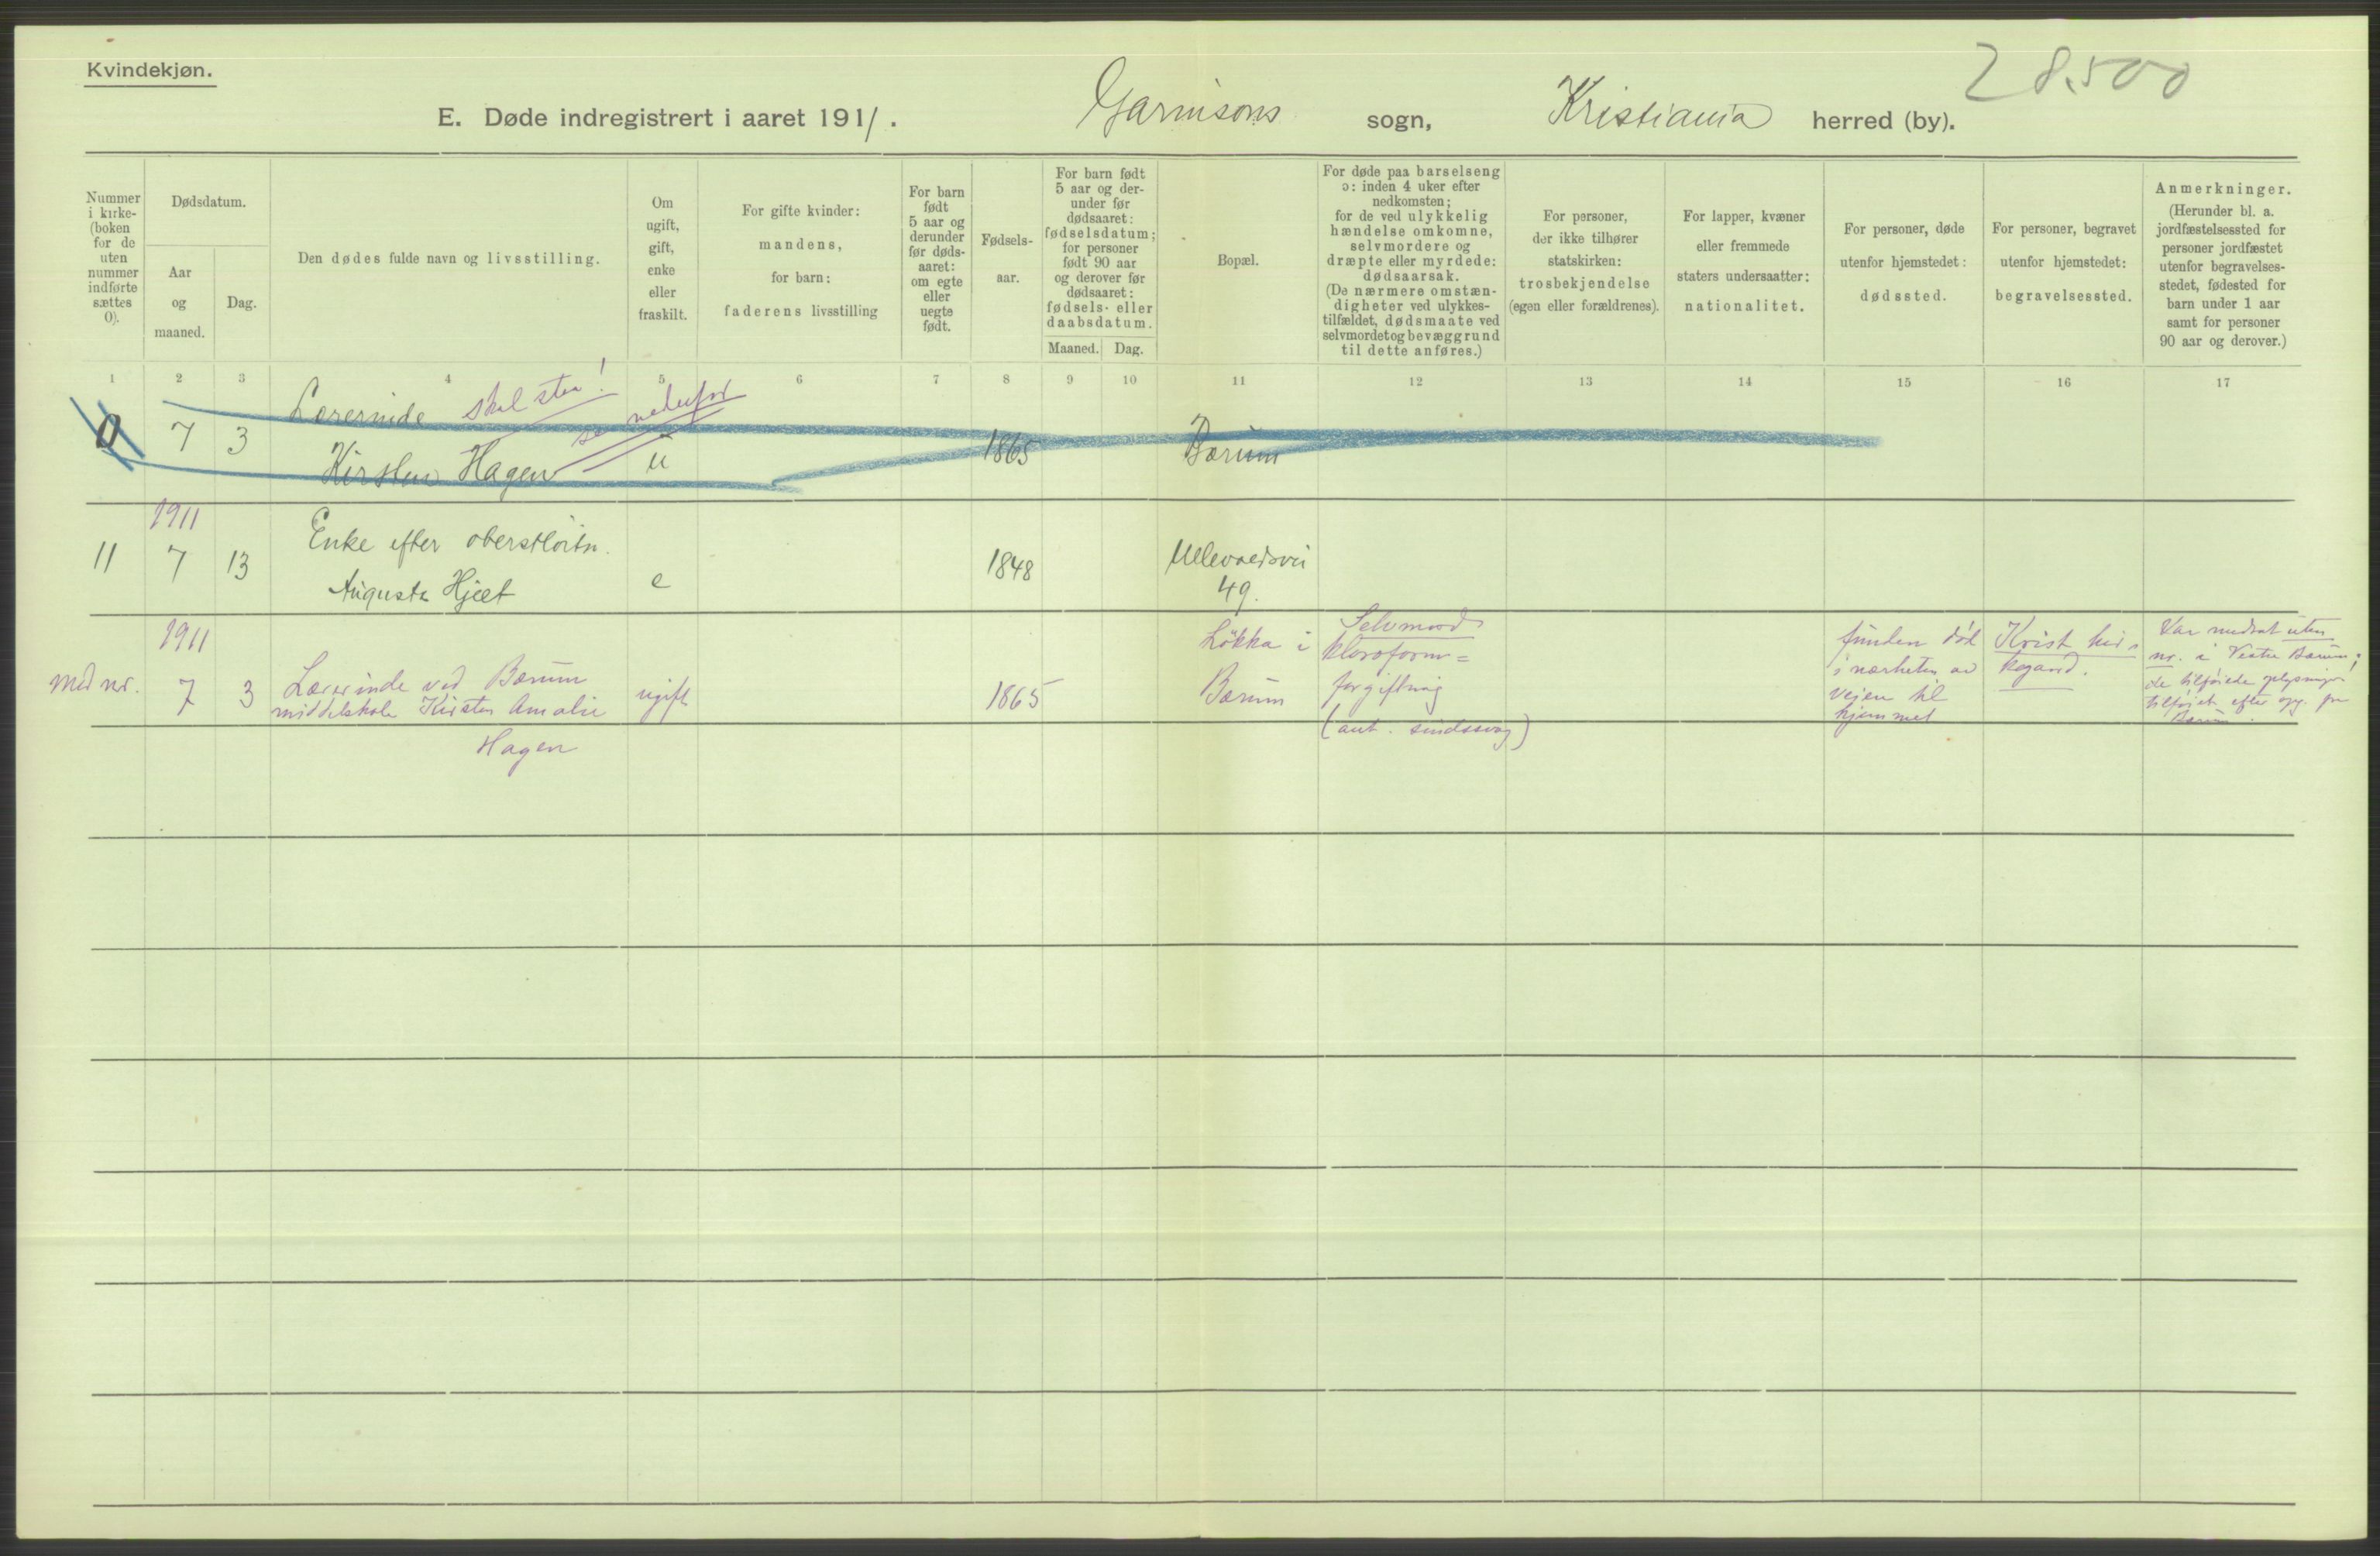 Kvindekjøn.
28.500
E. Døde indregistrert i aaret 1911. Garnisons sogn, Kristiania herred (by).
Nummer i kirke- (boken for de uten nummer indførte sættes 0).
Dødsdatum.
Aar og maaned.
Dag.
Den dødes fulde navn og livsstilling.
Om ugift, gift, enke eller fraskilt.
For gifte kvinder: mandens, for barn: faderens livsstilling
For barn født 5 aar og derunder før døds- aaret: om egte eller uegte født.
Fødsels- aar.
For barn født 5 aar og der- under før dødsaaret: fødselsdatum; for personer født 90 aar og derover før dødsaaret: fødsels- eller daabsdatum.
Maaned. Dag.
Bopæl.
For døde paa barselseng ɔ: inden 4 uker efter nedkomsten; for de ved ulykkelig hændelse omkomne, selvmordere og dræpte eller myrdede: dødsaarsak. (De nærmere omstæn- digheter ved ulykkes- tilfældet, dødsmaate ved selvmordet og bevæggrund til dette anføres.)
For personer, der ikke tilhører statskirken: trosbekjendelse (egen eller forældrenes).
For lapper, kvæner eller fremmede staters undersaatter: nationalitet.
For personer, døde utenfor hjemstedet: dødssted.
For personer, begravet utenfor hjemstedet: begravelsessted.
Anmerkninger. (Herunder bl. a. jordfæstelsessted for personer jordfæstet utenfor begravelses- stedet, fødested for barn under 1 aar samt for personer 90 aar og derover.)
1 2 3 4 5 6 7 8 9 10 11 12 13 14 15 16 17
Lærerinde skal staa! se nedenfor
0 7 3 Kirsten Hagen u 1865 Bærum
1911
11 7 13 Enke efter oberstløitn. e 1848 Ullevoldsvei
Augusta Hjelt 49.
1911
med nr. 7 3 Lærerinde ved Bærum
middelskole Kirsten Amalie
Hagen
ugift 1865
Løkka i
Bærum
Selvmord
kloroform=
forgiftning
(ant. sindssvag)
funden død
i nærheten av
veien til
hjemmet
Krist. kir-
kegaard.
Var medtat uten
nr. i Vestre Bærum;
de tilføiede oplysninger
tilføiet efter opg. fra
Bærum.